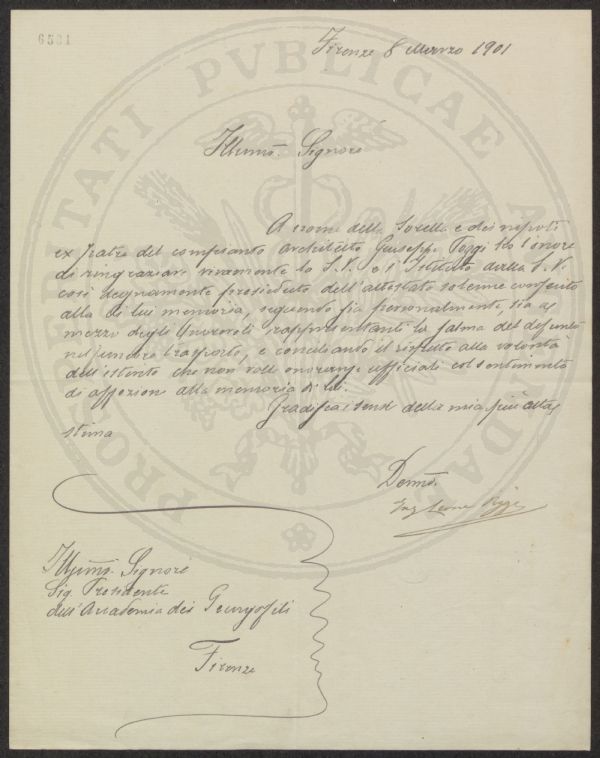 6581
Firenze 8 Marzo 1901
PROSPERITATI PVBLICAE AVGENDAE
Illmo. Signore
A nome della Sorella e dei nipoti
ex fratre del compianto Architetto Giuseppe Poggi ho l'onore
di ringraziare vivamente la S.V. e l'Istituto dalla S.V.
così degnamente presieduto dell'attestato solenne conferito
alla di lui memoria, seguendo sia personalmente, sia a
mezzo degli onorevoli rappresentanti la salma del defunto
nel funebre trasporto, e conciliando il rispetto alla volontà
dell'estinto che non volle onoranze ufficiali col sentimento
di affezione alla memoria di lui.
Gradisca i sensi della mia più alta
stima
Devmo.
Ing. Poggi
Illmo. Signore
Sig. Presidente
dell'Accademia dei Georgofili
Firenze